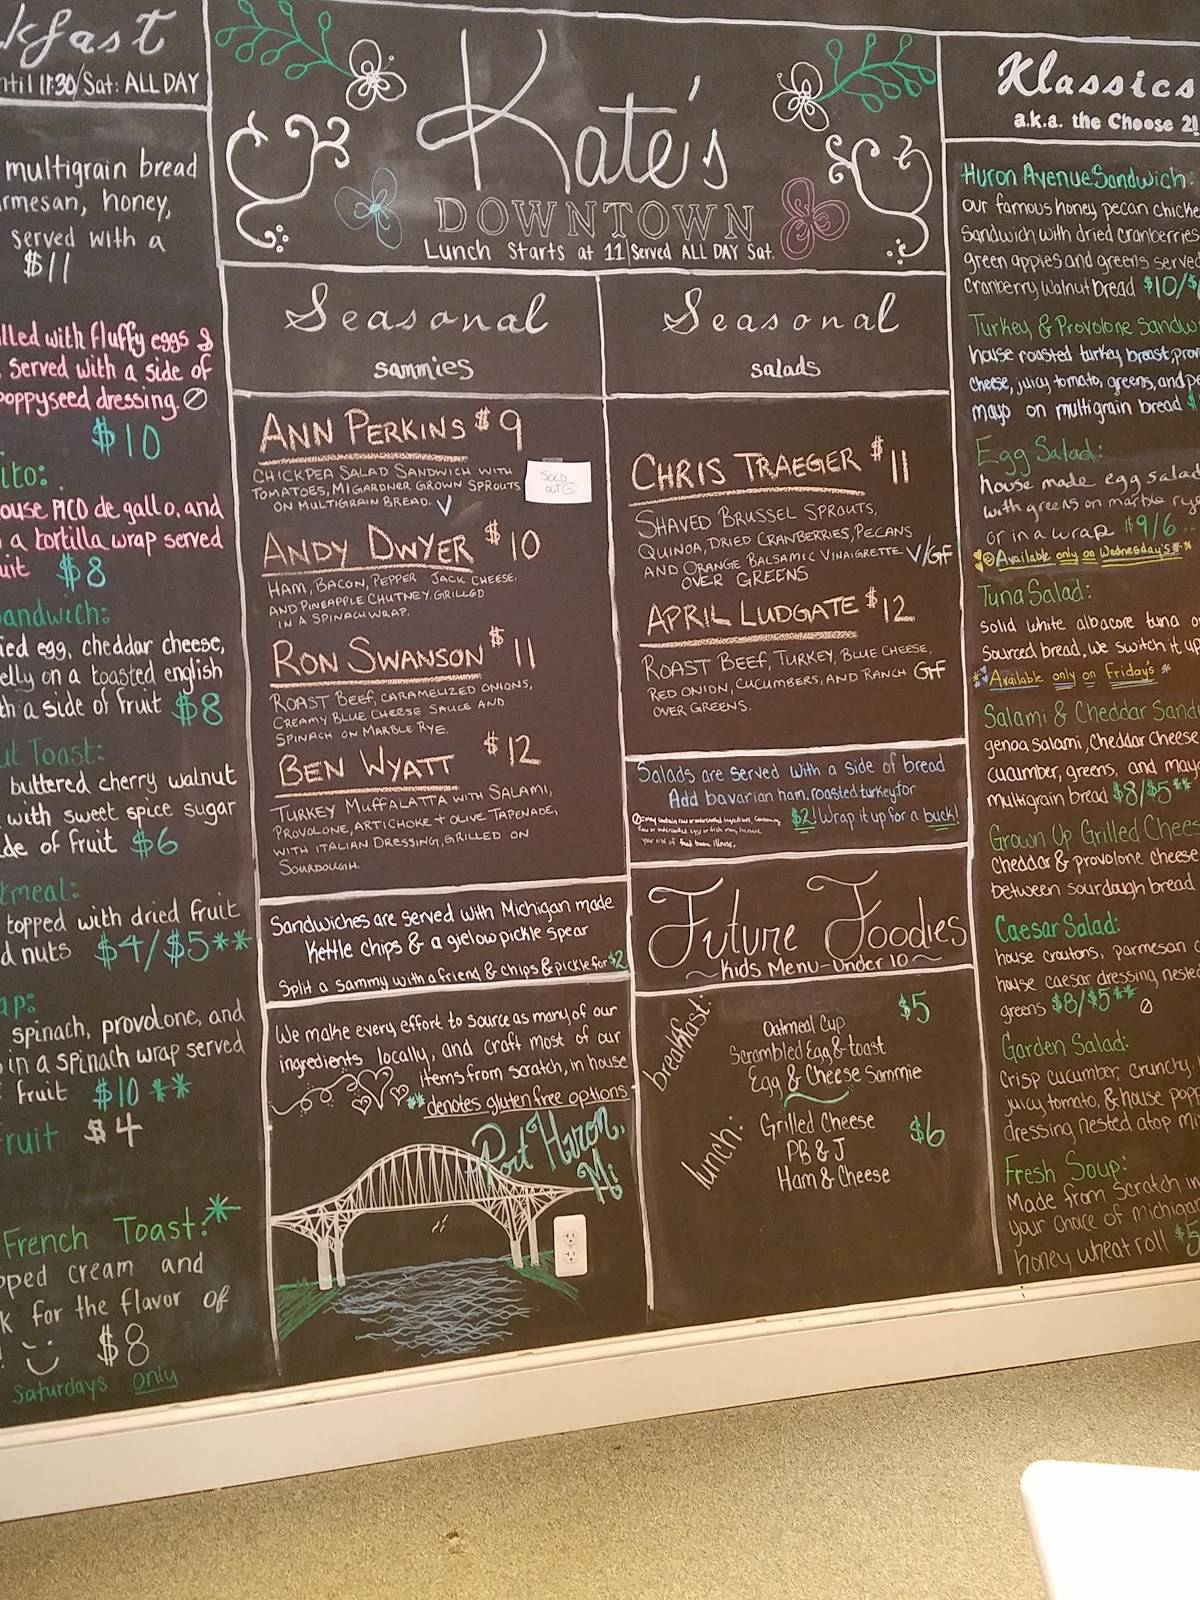 kfast
ntil 11:30/Sat: ALL DAY
multigrain bread
rmesan, honey,
served with a
$11
lled with fluffy eggs &
served with a side of
poppyseed dressing.
$10
ito:
ouse PICO de gallo, and
a tortilla wrap served
uit $8
andwich:
ied egg, cheddar cheese,
elly on a toasted english
th a side of fruit $8
ut Toast:
buttered cherry walnut
with sweet spice sugar
de of fruit $6
tmeal:
topped with dried fruit
d nuts $4/$5**
ap:
spinach, provolone, and
in a spinach wrap served
fruit $10 **
ruit $4
French Toast:*
pped cream and
k for the flavor of
! $8
Saturdays only
Kate's
DOWNTOWN
Lunch Starts at 11|Served ALL DAY Sat.
Seasonal
sammies
ANN PERKINS $9
CHICKPEA SALAD SANDWICH WITH
TOMATOES, MI GARDNER GROWN SPROUTS
ON MULTIGRAIN BREAD. V
SOLD
OUT
ANDY DWYER $10
HAM, BACON, PEPPER JACK CHEESE,
AND PINEAPPLE CHUTNEY, GRILLED
IN A SPINACH WRAP.
RON SWANSON $11
ROAST BEEF, CARAMELIZED ONIONS,
CREAMY BLUE CHEESE SAUCE AND
SPINACH ON MARBLE RYE.
BEN WYATT $12
TURKEY MUFFALATTA WITH SALAMI,
PROVOLONE, ARTICHOKE + OLIVE TAPENADE,
WITH ITALIAN DRESSING, GRILLED ON
SOURDOUGH.
Sandwiches are served with Michigan made
Kettle chips & a gielow pickle spear
Split a sammy with a friend & chips & pickle for $2
We make every effort to source as many of our
ingredients locally, and craft most of our
items from scratch, in house
** denotes gluten free options
Port Huron,
Mi
Seasonal
salads
CHRIS TRAEGER $11
SHAVED BRUSSEL SPROUTS,
QUINOA, DRIED CRANBERRIES, PECANS
AND ORANGE BALSAMIC VINAIGRETTE V/GF
OVER GREENS
APRIL LUDGATE $12
ROAST BEEF, TURKEY, BLUE CHEESE,
RED ONION, CUCUMBERS, AND RANCH GFF
OVER GREENS.
Salads are served with a side of bread
Add bavarian ham, roasted turkey for
$2! Wrap it up for a buck!
may contain raw or undercooked ingredients. Consuming
raw or undercooked
your risk of food borne illness.
Future Foodies
~Kids Menu-Under 10~
breakfast:
$5
Oatmeal Cup
Scrambled Egg & toast
Egg & Cheese Sammie
lunch:
Grilled Cheese
$6
PB & J
Ham & Cheese
Klassics
a.k.a. the Choose 2!
Huron Avenue Sandwich:
our famous honey pecan chicke
Sandwich with dried cranberries
green apples and greens served
Cranberry walnut bread $10/$
Turkey & Provolone Sandw
house roasted turkey breast, prov
cheese, juicy tomato, greens, and pe
mayo on multigrain bread $
Egg Salad:
house made egg salad
with greens on marble rye
or in a wrap $9/6
*Available only on Wednesday's*
Tuna Salad:
solid white albacore tuna o
Sourced bread, we switch it up
*Available only on Friday's*
Salami & Cheddar Sand
genoa salami, Cheddar Cheese
cucumber, greens, and mayo
multigrain bread $8/$5**
Grown Up Grilled Chees
Cheddar & provolone cheese
between sourdough bread
Caesar Salad:
house croutons, parmesan
house caesar dressing nested
greens $8/$5**
Garden Salad:
Crisp cucumber, crunchy
juicy tomato, & house popp
dressing nested atop mi
Fresh Soup:
Made from Scratch in
your choice of michiga
honey wheat roll $5